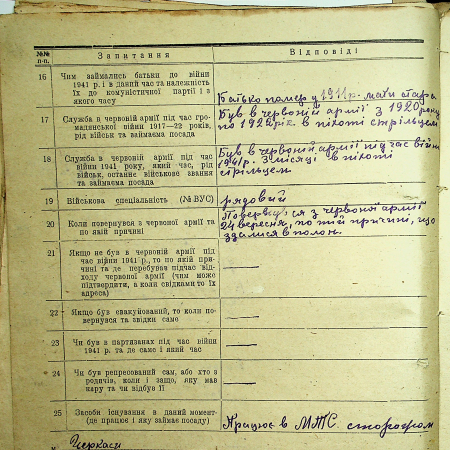 №№ п-п.
Запитання
Відповіді
16
Чим займались батьки до війни
1941 р. і в даний час та належність
їх до комуністичної партії і з
якого часу
Батько помер у 1911 р. мати стара
17
Служба в червоній армії під час гро-
мадянської війни 1917—22 років,
рід військ та займаема посада
Був в червоній армії з 1920 року
по 1922 рік в піхоті стрільцем
18
Служба в червоній армії під час
війни 1941 року, який час, рід
військ, останнє військове звання
та займаема посада
Був в червоній армії під час війни
1941 р. 3 місяці в піхоті
стрільцем
19
Військова спеціальність (№ ВУС)
рядовий
20
Коли повернувся з червоної армії та
по якій причині
Повернувся з червоної армії
24 вересня, по той причині, що
здалися в полон.
21
Якщо не був в червоній армії під
час війни 1941 р., то по якій при-
чині та де перебував підчас від-
ходу червоної армії (чим може
підтвердити, а коли свідками то їх
адреса)
—
22
Якщо був евакуйований, то коли по-
вернувся та звідки саме
—
23
Чи був в партизанах під час війни
1941 р. та де саме і який час
—
24
Чи був репресований сам, або хто з
родичів, коли і защо, яку мав
кару та чи відбув її
—
25
Засоби існування в даний момент
(де працює і яку займає посаду)
Працює в МТС сторожом
Черкаси